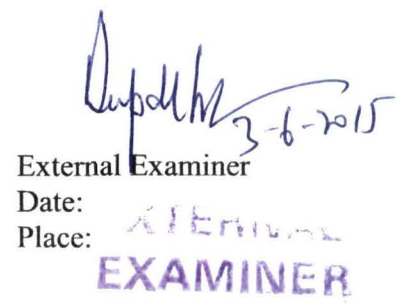 3-6-2015
External Examiner
Date:
Place:
EXTERNAL
EXAMINER